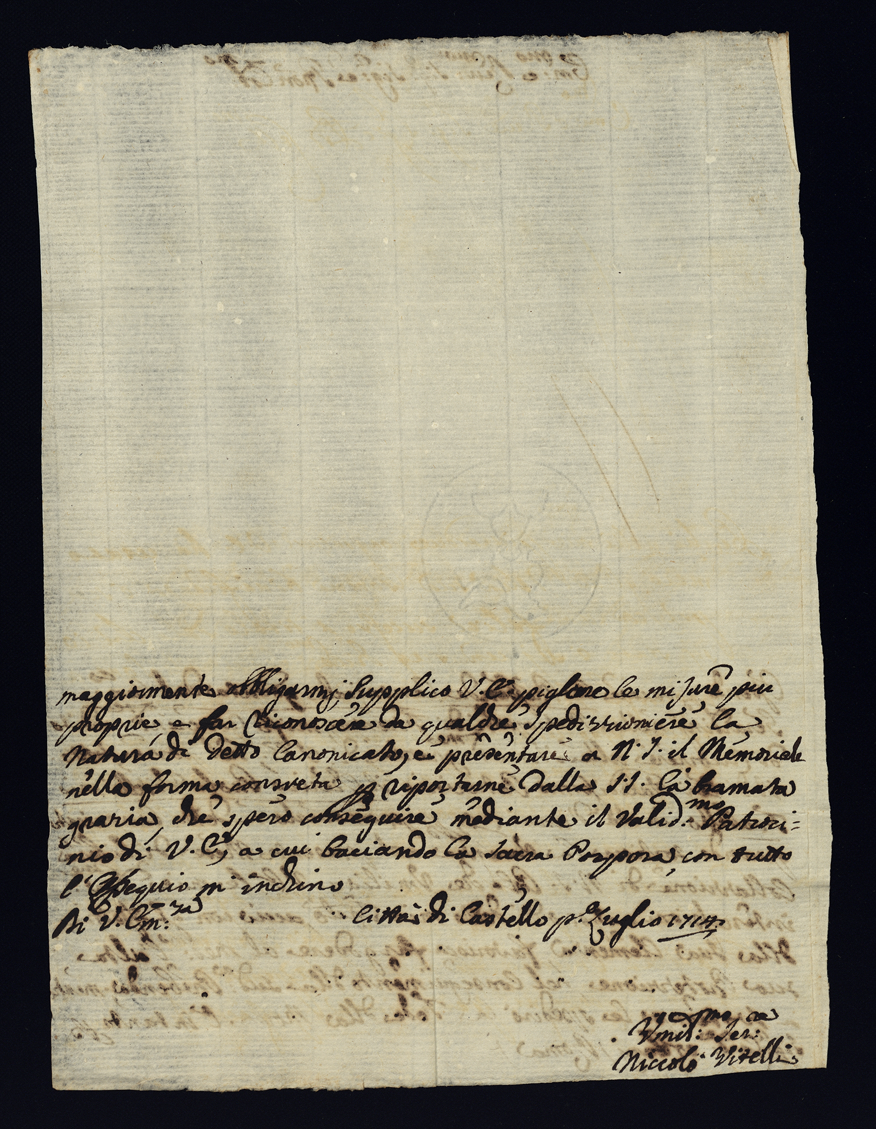 maggiormente obbligarmj; Supplico V. E.ª pigliare le misure piu
proprie e far riconoscere da qualche Spedizzioniere la
Natura di detto Canonicato, e presentare a N. S. il Memoriale
nella forma consveta p riportarne dalla S. S. la bramata
grazia, che spero conseguire mediante il Valid.mo Patroci=
nio di V. E., a cui baciando la Sacra Porpora, con tutto
l'Ossequio m'inchino
Di V. Em.za Città di Castello p.º Luglio 1714
Vmil.mo Ser.
Niccolò Vitelli